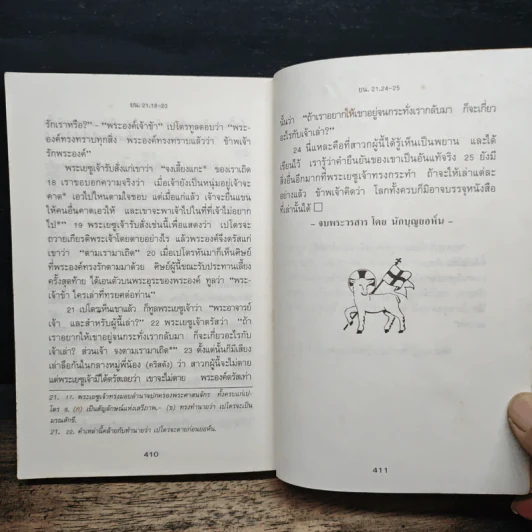 ยน. 21.18-23
รักเราหรือ?” - “พระองค์เจ้าข้า” เปโตรทูลตอบว่า “พระ-
องค์ทรงทราบทุกสิ่ง พระองค์ทรงทราบแล้วว่า ข้าพเจ้า
รักพระองค์”
พระเยซูเจ้ารับสั่งแก่เขาว่า “จงเลี้ยงแกะ ของเราเถิด
18 เราขอบอกความจริงว่า เมื่อเจ้ายังเป็นหนุ่มอยู่เจ้าจะ
คาด เอวไปไหนตามใจชอบ แต่เมื่อแก่แล้ว เจ้าจะยื่นแขน
ให้คนอื่นคาดเอวให้ และเขาจะพาเจ้าไปในที่ที่เจ้าไม่อยาก
ไป” 19 พระเยซูเจ้ารับสั่งเช่นนี้เพื่อแสดงว่า เปโตรจะ
ถวายเกียรติพระเจ้าโดยตายอย่างไร แล้วพระองค์จึงตรัสแก่
เขาว่า “ตามเรามาเถิด” 20 เมื่อเปโตรหันมาก็เห็นศิษย์
ที่พระองค์ทรงรักตามมาด้วย ศิษย์ผู้นี้ขณะรับประทานเลี้ยง
ครั้งสุดท้าย ได้เอนตัวบนพระอุระของพระองค์ ทูลว่า “พระ-
เจ้าข้า ใครเล่าที่ทรยศต่อท่าน”
21 เปโตรเห็นเขาแล้ว ก็ทูลพระเยซูเจ้าว่า “พระอาจารย์
เจ้า และสำหรับผู้นี้เล่า?” 22 พระเยซูเจ้าตรัสว่า “ถ้า
เราอยากให้เขาอยู่จนกระทั่งเรากลับมา ก็จะเกี่ยวอะไรกับ
เจ้าเล่า? ส่วนเจ้า จงตามเรามาเถิด” 23 ตั้งแต่นั้นก็มีเสียง
เล่าลือกันในกลางหมู่พี่น้อง (คริสตัง) ว่า สาวกผู้นี้จะไม่ตาย
แต่พระเยซูเจ้ามิได้ตรัสเลยว่า เขาจะไม่ตาย พระองค์ตรัสเท่า
21. 17. พระเยซูเจ้าทรงมอบอำนาจปกครองพระศาสนจักร ทั้งครบแก่เป-
โตร 8. เป็นสัญลักษณ์แห่งเสรีภาพ.- ทรงทำนายว่า เปโตรจะเป็น
มรณสักขี.
21. 22. คำเหล่านี้คล้ายกับทำนายว่า เปโตรจะตายก่อนยอห์น.
410
ยน. 21.24-25
นั้นว่า “ถ้าเราอยากให้เขาอยู่จนกระทั่งเรากลับมา ก็จะเกี่ยว
อะไรกับเจ้าเล่า?”
24 นี่แหละคือที่สาวกผู้นี้ได้รู้เห็นเป็นพยาน และได้
เขียนไว้ เรารู้ว่าคำยืนยันของเขาเป็นอันแท้จริง 25 ยังมี
สิ่งอื่นอีกมากที่พระเยซูเจ้าทรงกระทำ ถ้าจะให้เล่าแต่ละ
อย่างแล้ว ข้าพเจ้าคิดว่า โลกทั้งครบก็มิอาจบรรจุหนังสือ
ที่เล่านั้นได้
- จบพระวรสาร โดย นักบุญยอห์น -
411